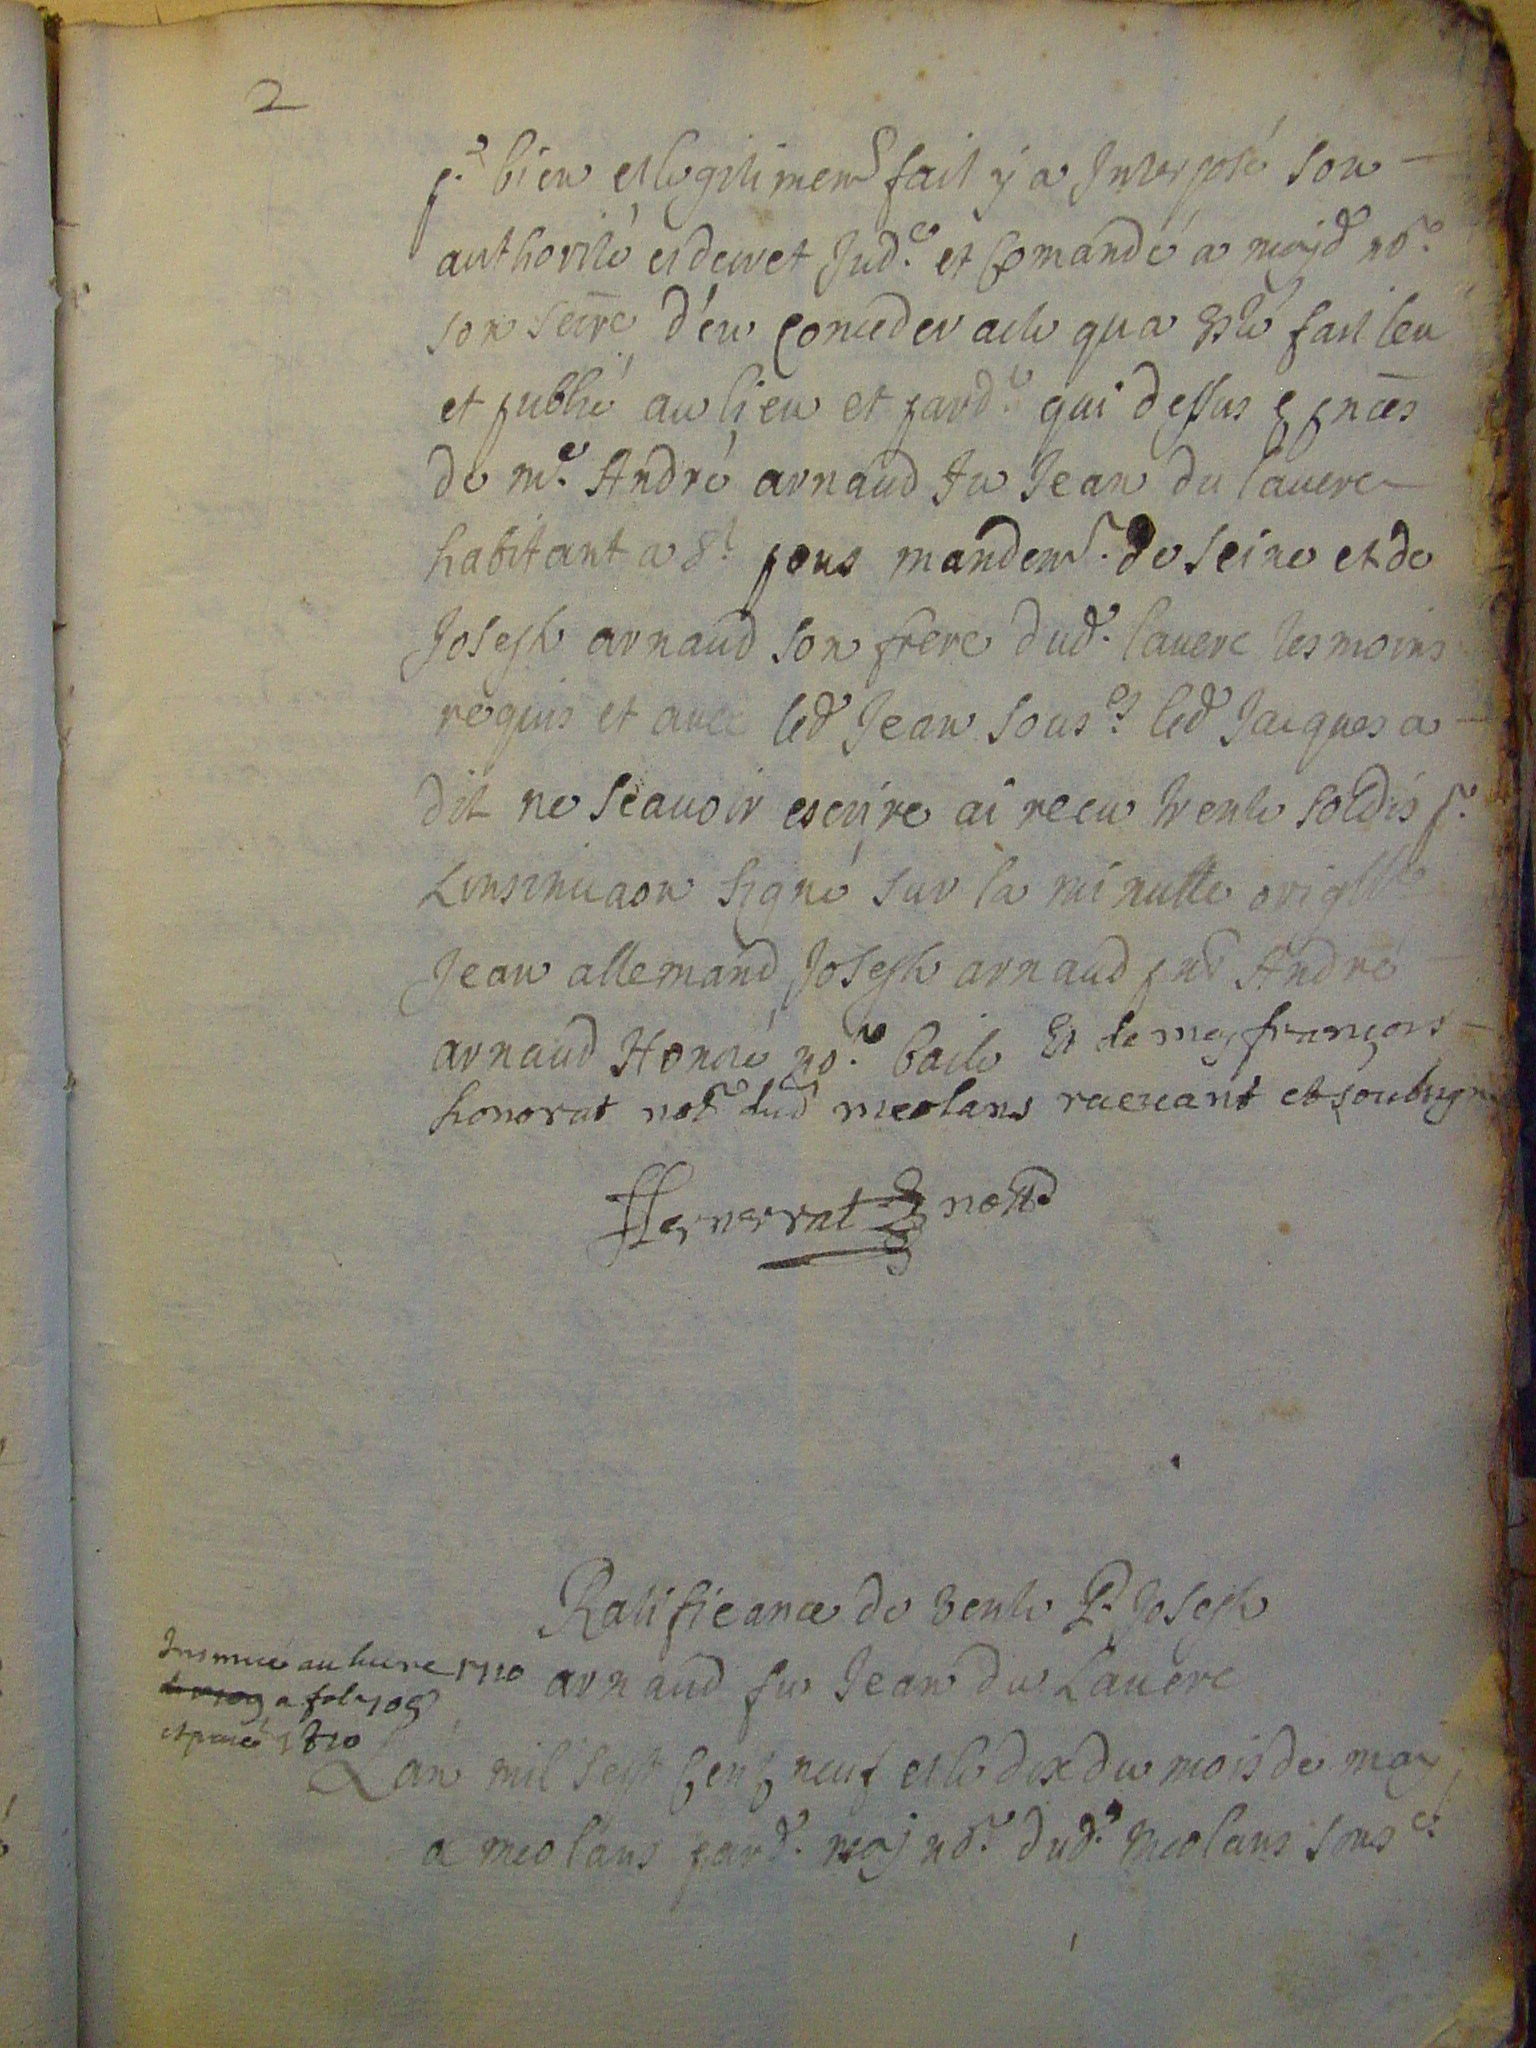 2
p.r bien et legitimem.t fait y a Interposé son
authorité et decret Jud.re et Comandé a moyd no.re
son secre d'en conceder acte qu'a esté fait leu
et publié au lieu et pard.t qui dessus e pnces
de m.e André arnaud fu Jean du lauerc
habitant a S.t pons mandem.t de seine et de
Joseph arnaud son frere dud.t lauerc tesmoins
requis et auec led Jean sous.es led Jacques a
dit ne scauoir escrire ai receu trente soldis p.r
Linsinuaon signé sur la minutte origlle
Jean allemand Joseph arnaud pnt André
arnaud Honoré no.re baile Et de moy françois
honorat not.re dud meolans receuant et soubsigné
Honnorrat nott.e
Ratificance de Vente P.r Joseph
arnaud fu Jean du Lauerc
Insinué au liure 1710
a fol 105
Lan mil sept Cent neuf et le dix du mois de may
a meolans pard.t moj no.re dud.t meolans sous.e